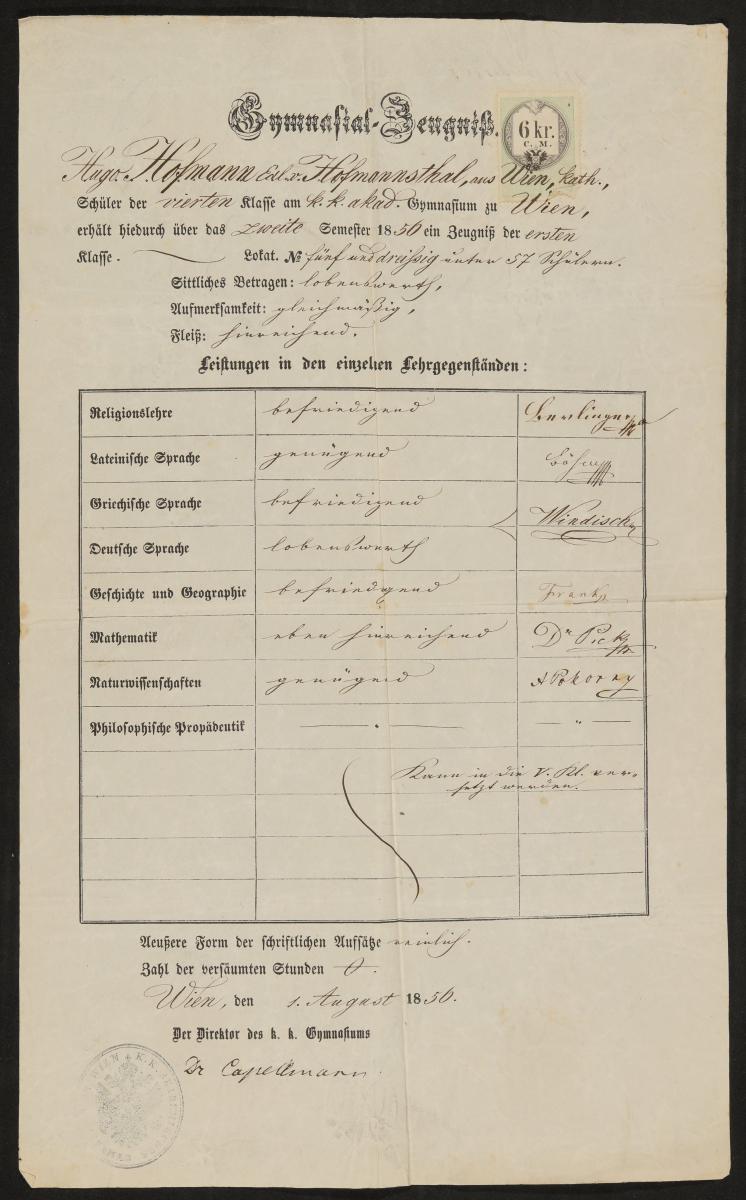 Gymnasial-Zeugniß.
6 kr.
C. M.
Hugo Hofmann Edl. v. Hofmannsthal, aus Wien, kath.,
Schüler der vierten Klasse am k. k. akad. Gymnasium zu Wien,
erhält hiedurch über das zweite Semester 1856 ein Zeugniß der ersten
Klasse. Lokat. № fünf und dreißig unter 57 Schülern.
Sittliches Betragen: lobenswerth,
Aufmerksamkeit: gleichmäßig,
Fleiß: hinreichend.
Leistungen in den einzelnen Lehrgegenständen:
Religionslehre befriedigend
Lateinische Sprache genügend Böhm
Griechische Sprache befriedigend Windisch
Deutsche Sprache lobenswerth
Geschichte und Geographie befriedgend Frank
Mathematik eben hinreichend Dr Pick
Naturwissenschaften genügend A Pokorny
Philosophische Propädeutik — " —
Kann in die V. Kl. ver-
setzt werden.
Aeußere Form der schriftlichen Aufsätze reinlich.
Zahl der versäumten Stunden 0.
Wien, den 1. August 1856.
Der Direktor des k. k. Gymnasiums
Dr Capellmann
WIEN K. K.